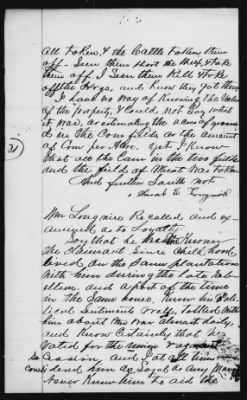 all taken, & the Cattle taken them
off. Seen them shoot the sheep, & take
them off, I seen them kill & take
off the Hogs, and know they got them
I had no way of knowing the value
of the property, & could not say what
it was, or estimating the acres of ground
in the Corn fields or the amount
of Corn per Acre. Yet I know
that all the Corn in the two fields
and the field of Wheat was taken
And further saith not
Sarah E. Longmire
21
Wm Longmire Recalled and ex-
amined as to Loyalty
Say that he has known
the claimant since Child hood
lived on the same plantation
with him during the late Reb-
ellion. and a part of the time
in the same house. Know his Pol-
itical sentiments well, talked with
him about this war almost daily,
and know certainly that he
voted for the union against
Se Cession, and I at all times
considered him as loyal as any Man
Never knew him to aid the